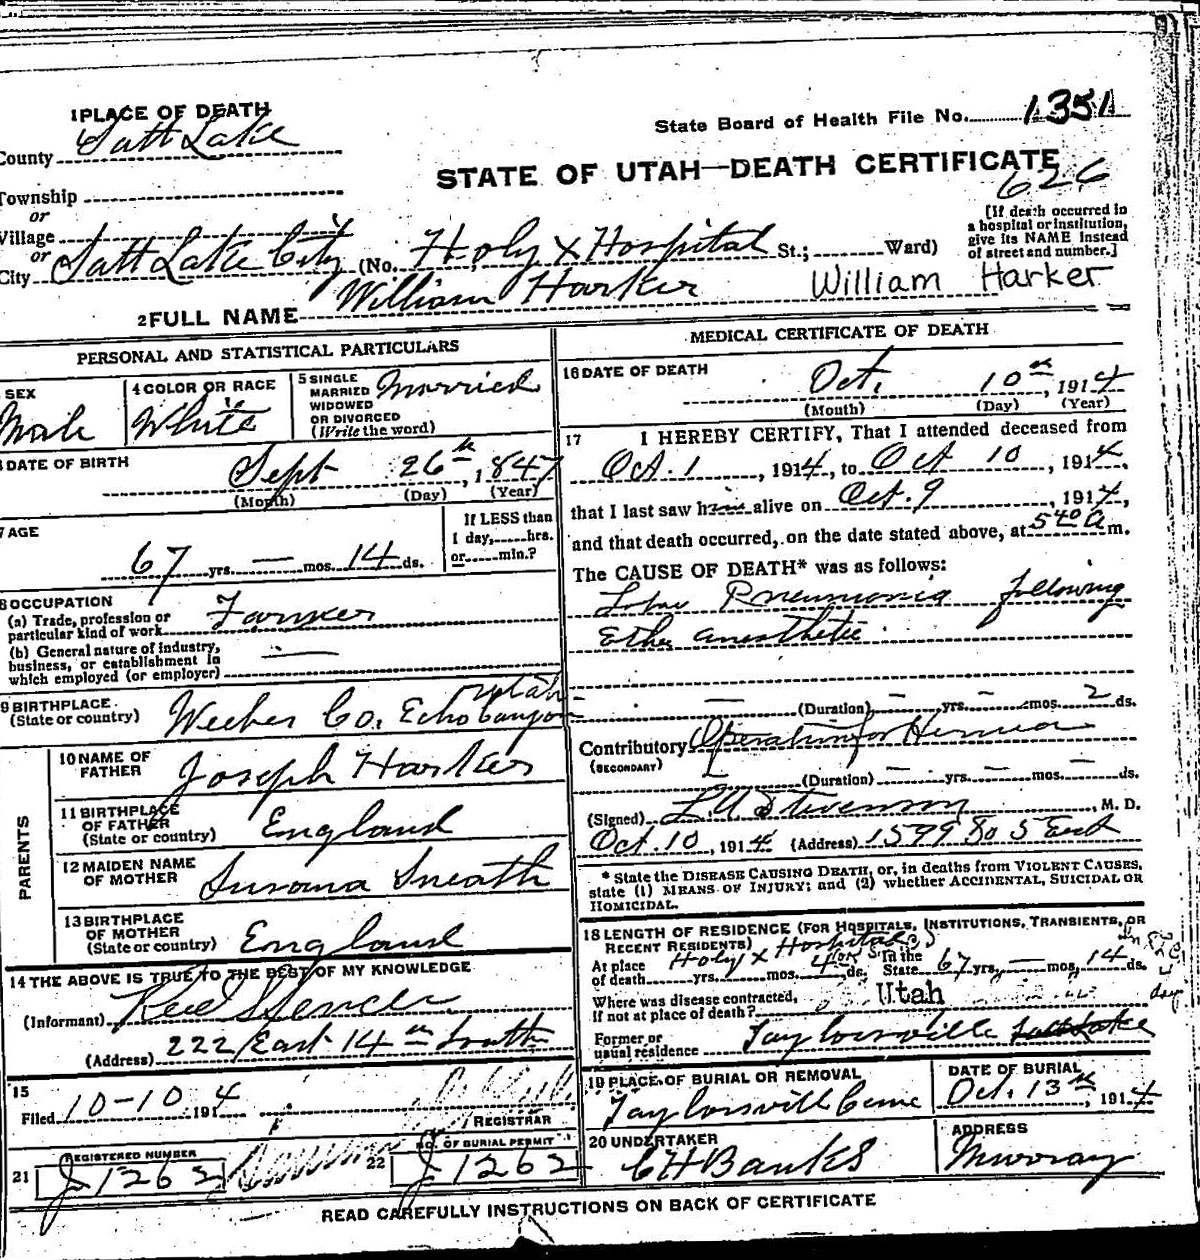 1 PLACE OF DEATH
County Salt Lake
State Board of Health File No. 1351
STATE OF UTAH—DEATH CERTIFICATE
626
Township
or
Village
or
City Salt Lake City (No. Holy X Hospital St.; Ward)
[If death occurred in
a hospital or institution,
give its NAME instead
of street and number.]
2 FULL NAME William Harker William Harker
PERSONAL AND STATISTICAL PARTICULARS
SEX
Male
4 COLOR OR RACE
White
5 SINGLE
MARRIED
WIDOWED
OR DIVORCED
(Write the word)
Married
DATE OF BIRTH
Sept 26th, 1847
(Month) (Day) (Year)
7 AGE
67 yrs. — mos. 14 ds.
If LESS than
1 day, hrs.
or min.?
8 OCCUPATION
(a) Trade, profession or
particular kind of work Farmer
(b) General nature of industry,
business, or establishment in
which employed (or employer)
9 BIRTHPLACE
(State or country) Weeber Co. Echo Canyon Utah
PARENTS
10 NAME OF
FATHER Joseph Harker
11 BIRTHPLACE
OF FATHER
(State or country) England
12 MAIDEN NAME
OF MOTHER Susana Sneath
13 BIRTHPLACE
OF MOTHER
(State or country) England
14 THE ABOVE IS TRUE TO THE BEST OF MY KNOWLEDGE
(Informant)
(Address) 222 East 14th South
15
Filed 10-10 1914
REGISTRAR
REGISTERED NUMBER
21 J1262
NO. OF BURIAL PERMIT
22 J1262
MEDICAL CERTIFICATE OF DEATH
16 DATE OF DEATH
Oct. 10th, 1914
(Month) (Day) (Year)
17 I HEREBY CERTIFY, That I attended deceased from
Oct. 1, 1914, to Oct 10, 1914,
that I last saw him alive on Oct. 9, 1914,
and that death occurred, on the date stated above, at 5 40 a m.
The CAUSE OF DEATH* was as follows:
Lobar Pneumonia following
Ether anesthetic
(Duration) — yrs. — mos. 2 ds.
Contributory Operation for Hernia
(SECONDARY)
(Duration) — yrs. — mos. — ds.
(Signed) L.A. Stevenson, M. D.
Oct. 10, 1914 (Address) 1599 So 5 East
* State the DISEASE CAUSING DEATH, or, in deaths from VIOLENT CAUSES,
state (1) MEANS OF INJURY; and (2) whether ACCIDENTAL, SUICIDAL OR
HOMICIDAL.
18 LENGTH OF RESIDENCE (FOR HOSPITALS, INSTITUTIONS, TRANSIENTS, OR
RECENT RESIDENTS) Holy X Hospital
At place
of death yrs. mos. ds. In the
State 67 yrs. — mos. 14 ds.
Where was disease contracted,
If not at place of death? Utah
Former or
usual residence Taylorsville Salt Lake
19 PLACE OF BURIAL OR REMOVAL
Taylorsvill Ceme
DATE OF BURIAL
Oct. 13th, 1914
20 UNDERTAKER
C H Banks
ADDRESS
Murray
READ CAREFULLY INSTRUCTIONS ON BACK OF CERTIFICATE